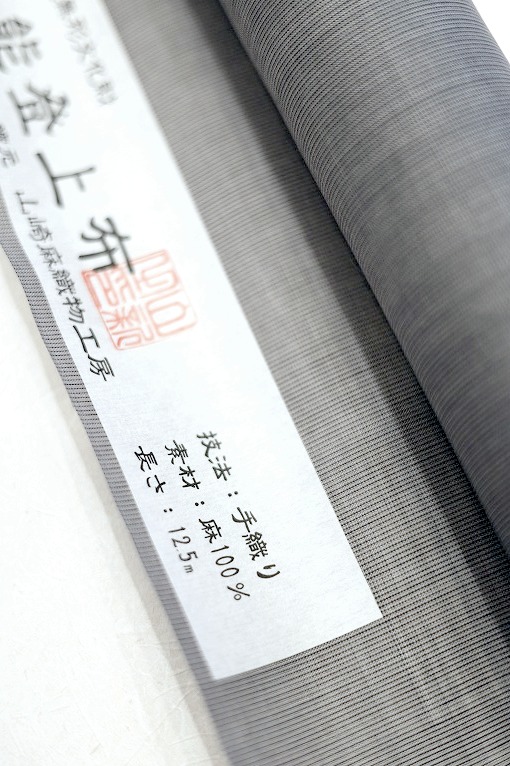 無形文化財
能登上布
織元 山崎麻織物工房
技法：手織り
素材：麻100％
長さ：12.5m